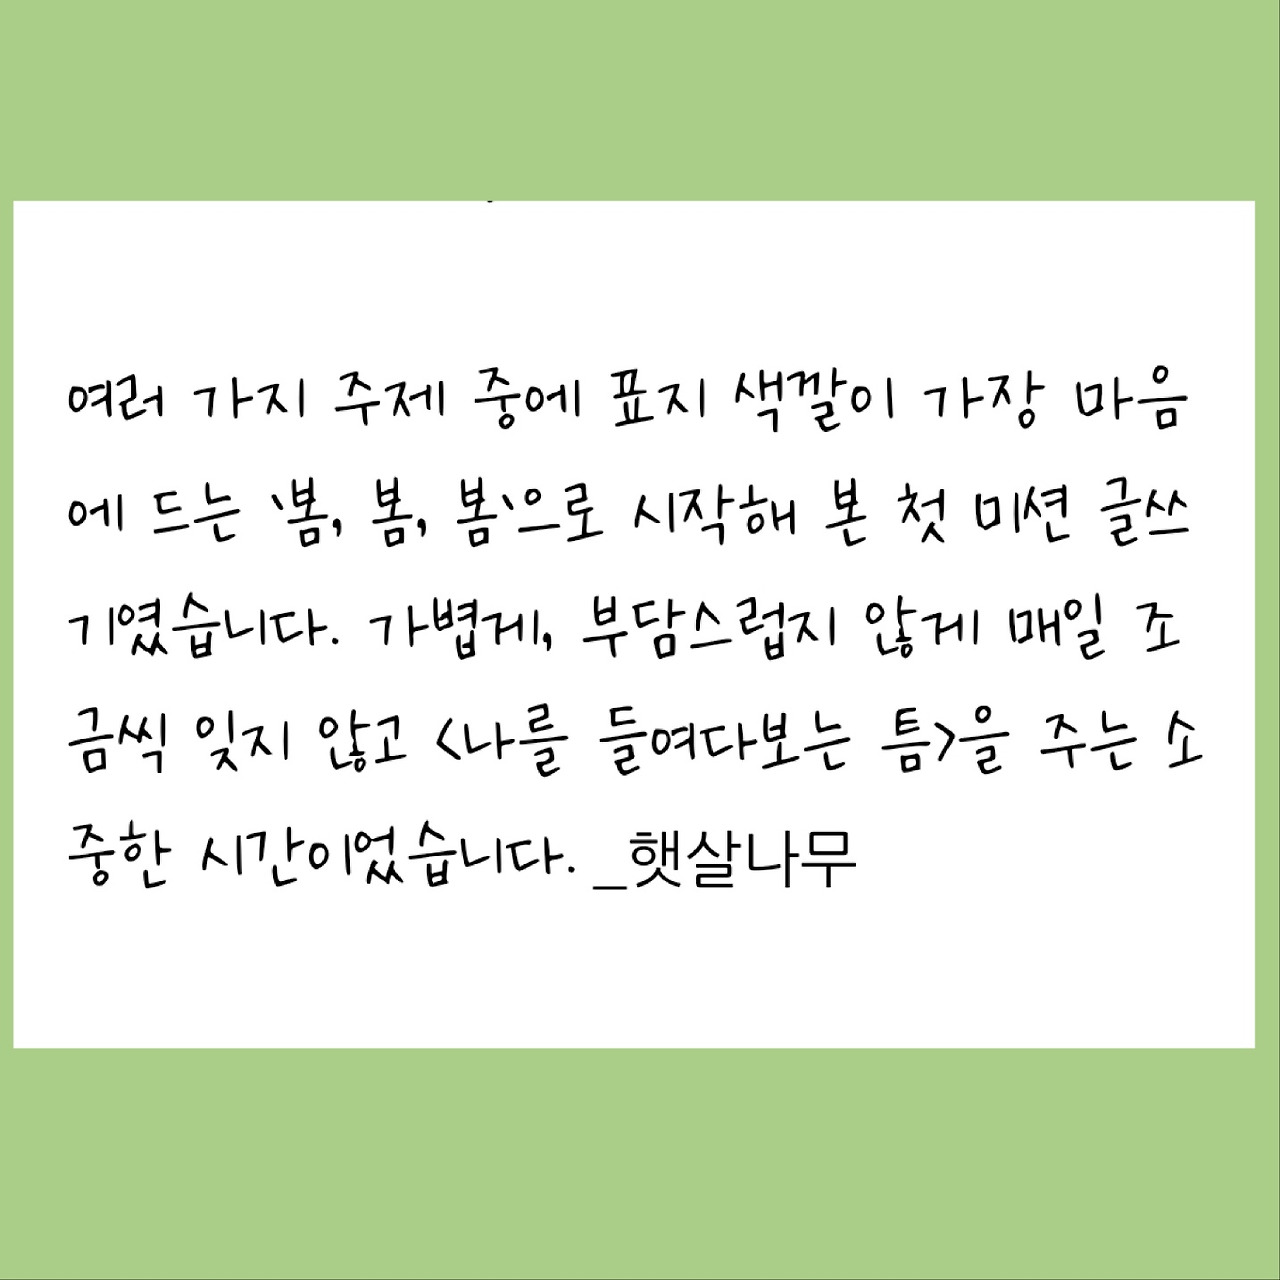 여러 가지 주제 중에 표지 색깔이 가장 마음
에 드는 '봄, 봄, 봄'으로 시작해 본 첫 미션 글쓰
기였습니다. 가볍게, 부담스럽지 않게 매일 조
금씩 잊지 않고 <나를 들여다보는 틈>을 주는 소
중한 시간이었습니다. _햇살나무